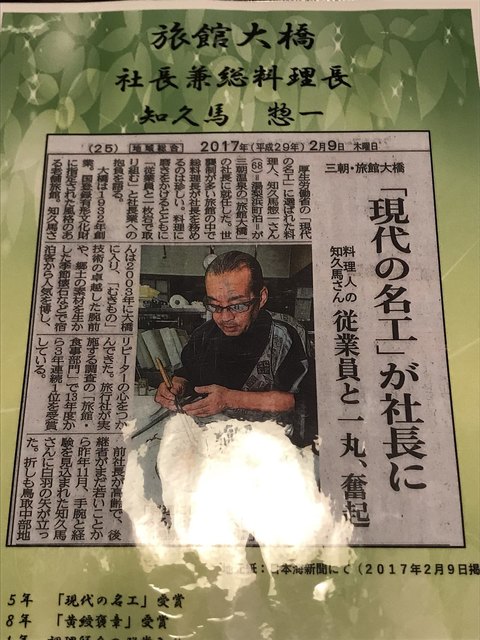 旅館大橋
社長兼総料理長
知久馬 惣一
(25) 地域総合 2017年(平成29年)2月9日 木曜日
三朝・旅館大橋
「現代の名工」が社長に
料理人の
知久馬さん
従業員と一丸、奮起
厚生労働省の「現代
の名工」に選ばれた料
理人、知久馬惣一さん
(68)=湯梨浜町泊=が
三朝温泉の「旅館大橋」
の社長に就任した。世
襲制が多い旅館の中で
総料理長が社長を務め
るのは珍しい。料理に
磨きをかけるとともに
「従業員と一枚岩で取
り組む」と社長業への
抱負を語る。
大橋は1932年創
業。国登録有形文化財
に指定された風情のあ
る老舗旅館。知久馬さ
んは2003年に大橋
に入り、「むきもの」
技術の卓越した腕前
や、郷土の素材を生か
した季節懐石などで宿
泊客から人気を博し、
リピーターの心をつか
んできた。旅行社が実
施する調査の「旅館・
食事部門」で13年度か
ら3年連続1位を受賞
している。
前社長が高齢で、後
継者がまだ若いことか
ら昨年11月、手腕と経
験を見込まれた知久馬
さんに白羽の矢が立っ
た。折しも鳥取中部地
紙:日本海新聞にて(2017年2月9日掲
5年 「現代の名工」受賞
8年 「黄綬褒章」受賞